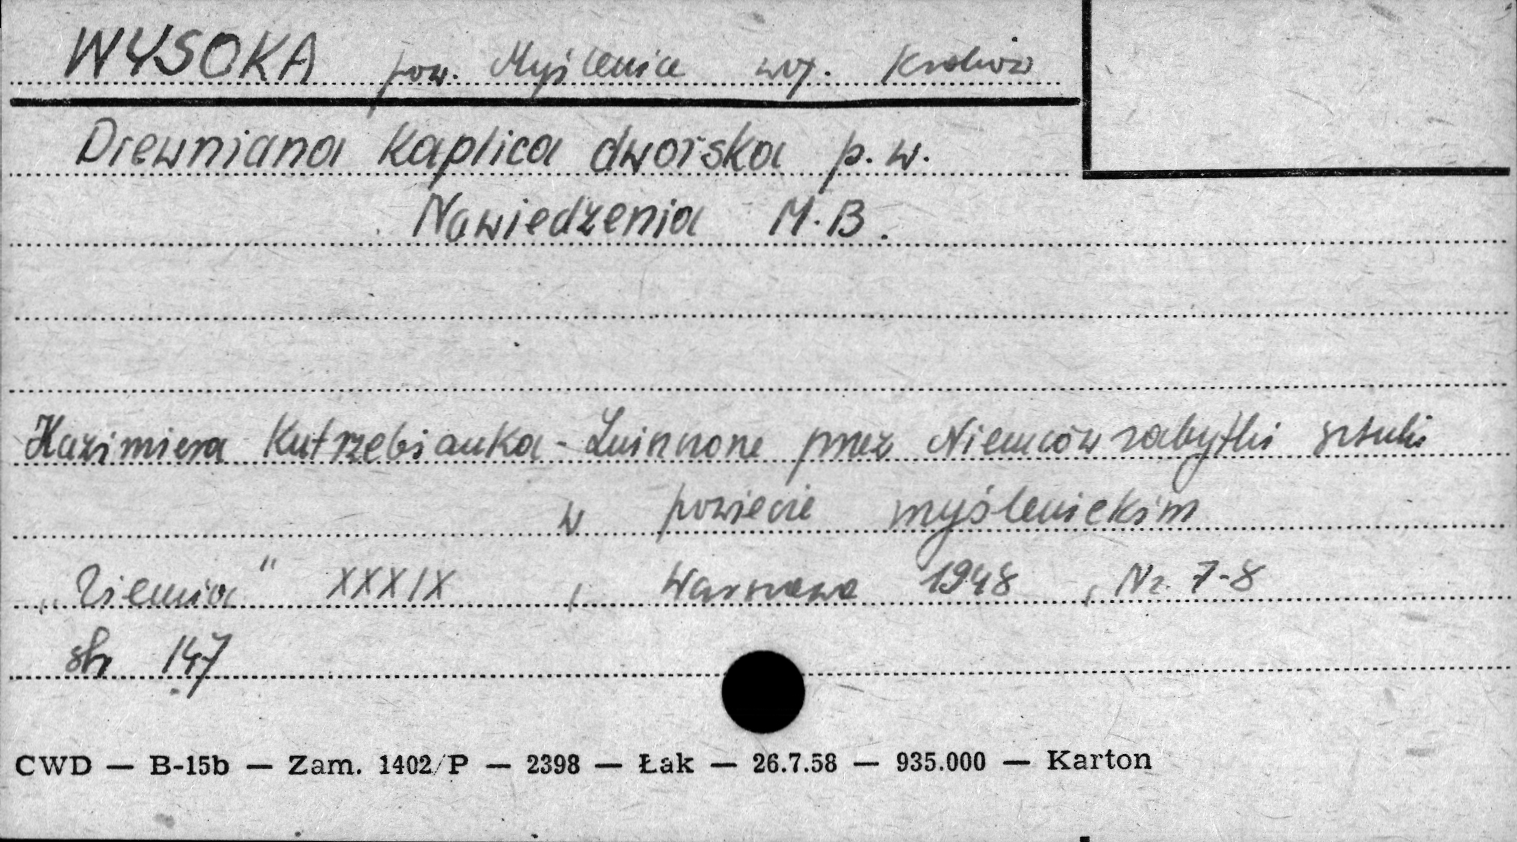 WYSOKA pow. Myślenice woj. Kraków
Drewniana Kaplica dworska p.w.
Nawiedzenia M.B.
Kazimiera Kutrzebianka - Zniszczone przez Niemców zabytki sztuki
w powiecie myślenickim
"Ziemia" XXXIX, Warszawa 1948, Nr. 7-8
str 147
CWD — B-15b — Zam. 1402/P — 2398 — Łak — 26.7.58 — 935.000 — Karton